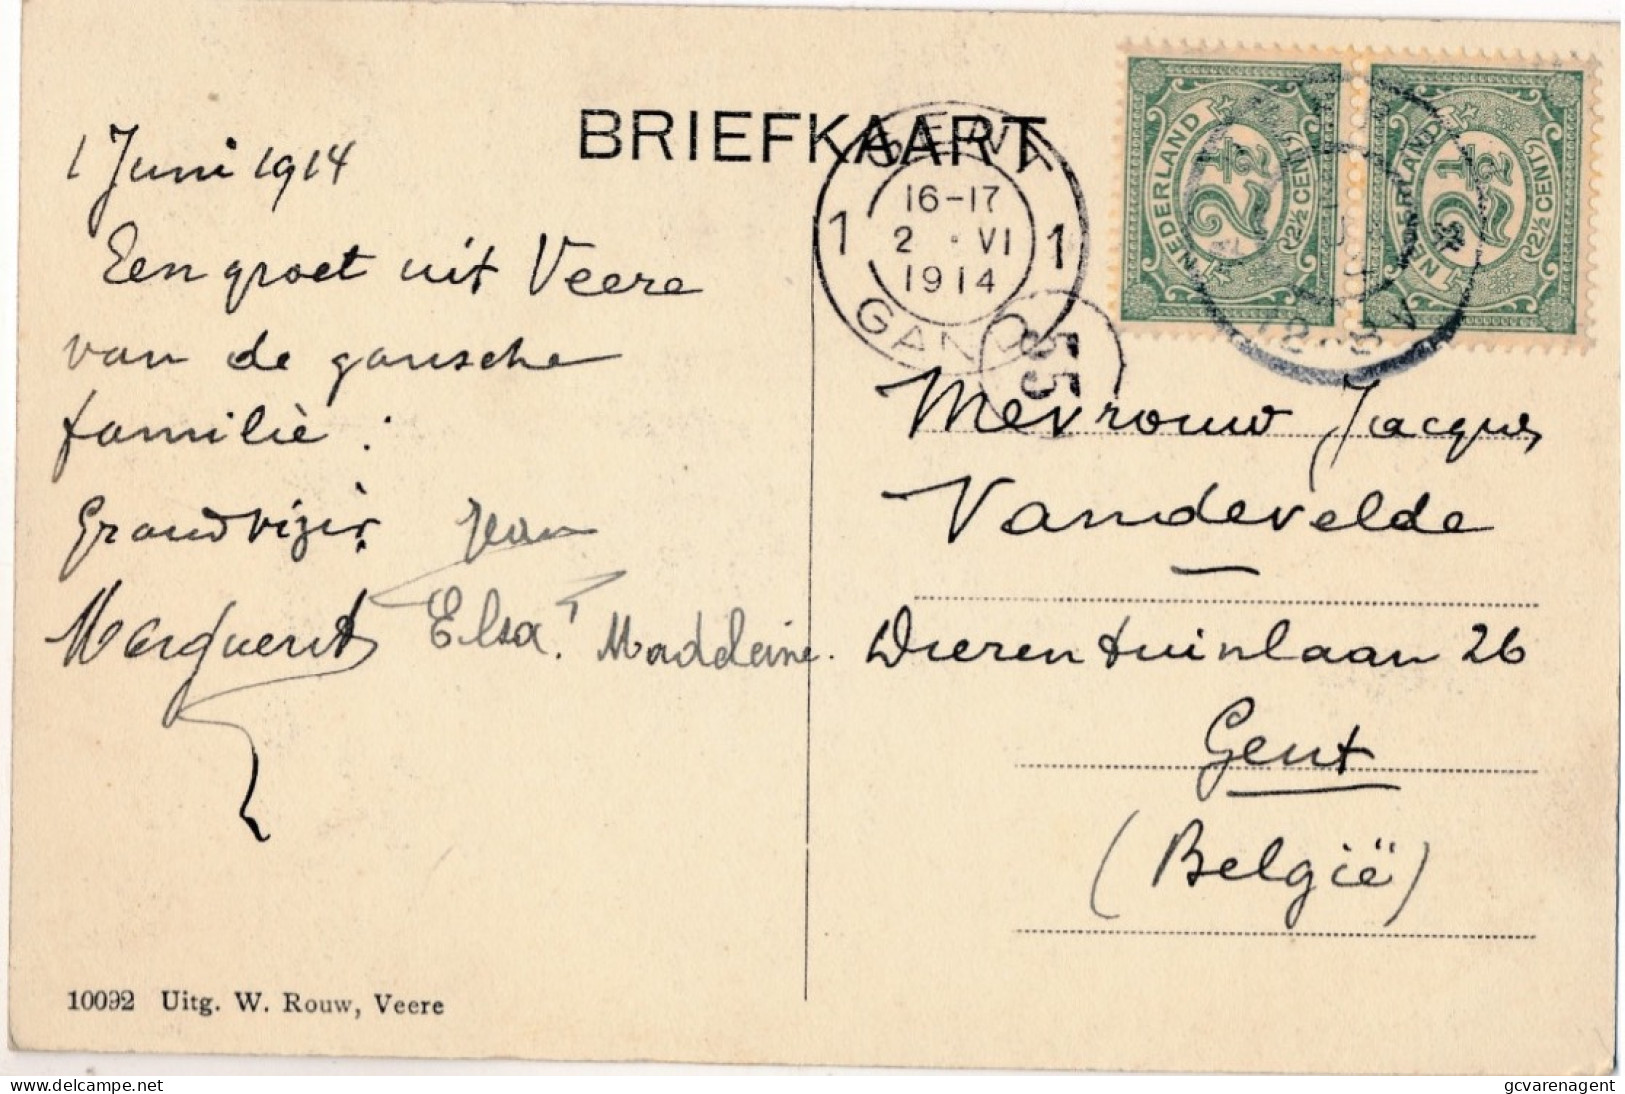 BRIEFKAART
1 Juni 1914
Een groet uit Veere
van de gansche
familiè :
Grandvizir. Jean
Marguerite Elsa. Madeleine.
10092 Uitg. W. Rouw, Veere
GENT
16-17
1 2 · VI 1
1914
GAND
55
NEDERLAND
2½
2½ CENT
NEDERLAND
2½
2½ CENT
Mevrouw Jacques
Vandevelde
Dierentuinlaan 26
Gent
(België)
www.delcampe.net
gcvarenagent